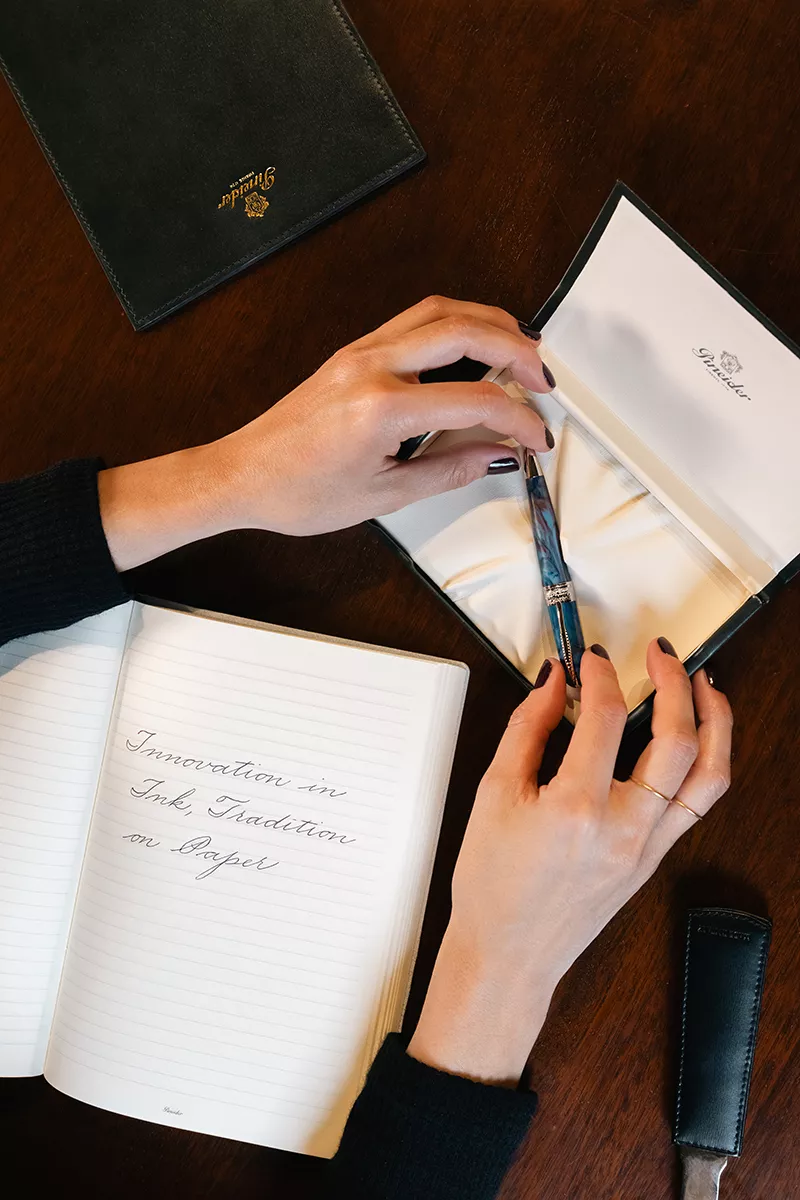 Pineider
Pineider
Innovation in
Ink, Tradition
on Paper
Pineider